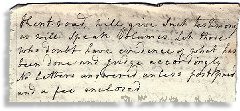 Kent road will give such testimony
as will speak Volumes. Let those
who doubt have evidence of what has
been done and judge accordingly
No Letters answered unless postpaid
and a fee enclosed